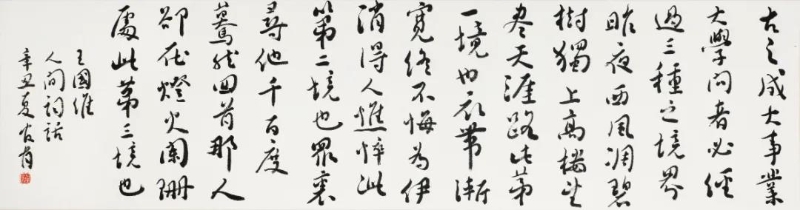 古之成大事業
大學問者必經
過三種之境界
昨夜西風凋碧
樹獨上高樓望
盡天涯路此第
一境也衣帶漸
寬終不悔為伊
消得人憔悴此
第二境也眾裏
尋他千百度
驀然回首那人
卻在燈火闌珊
處此第三境也
王國維
人间詞話
辛丑夏